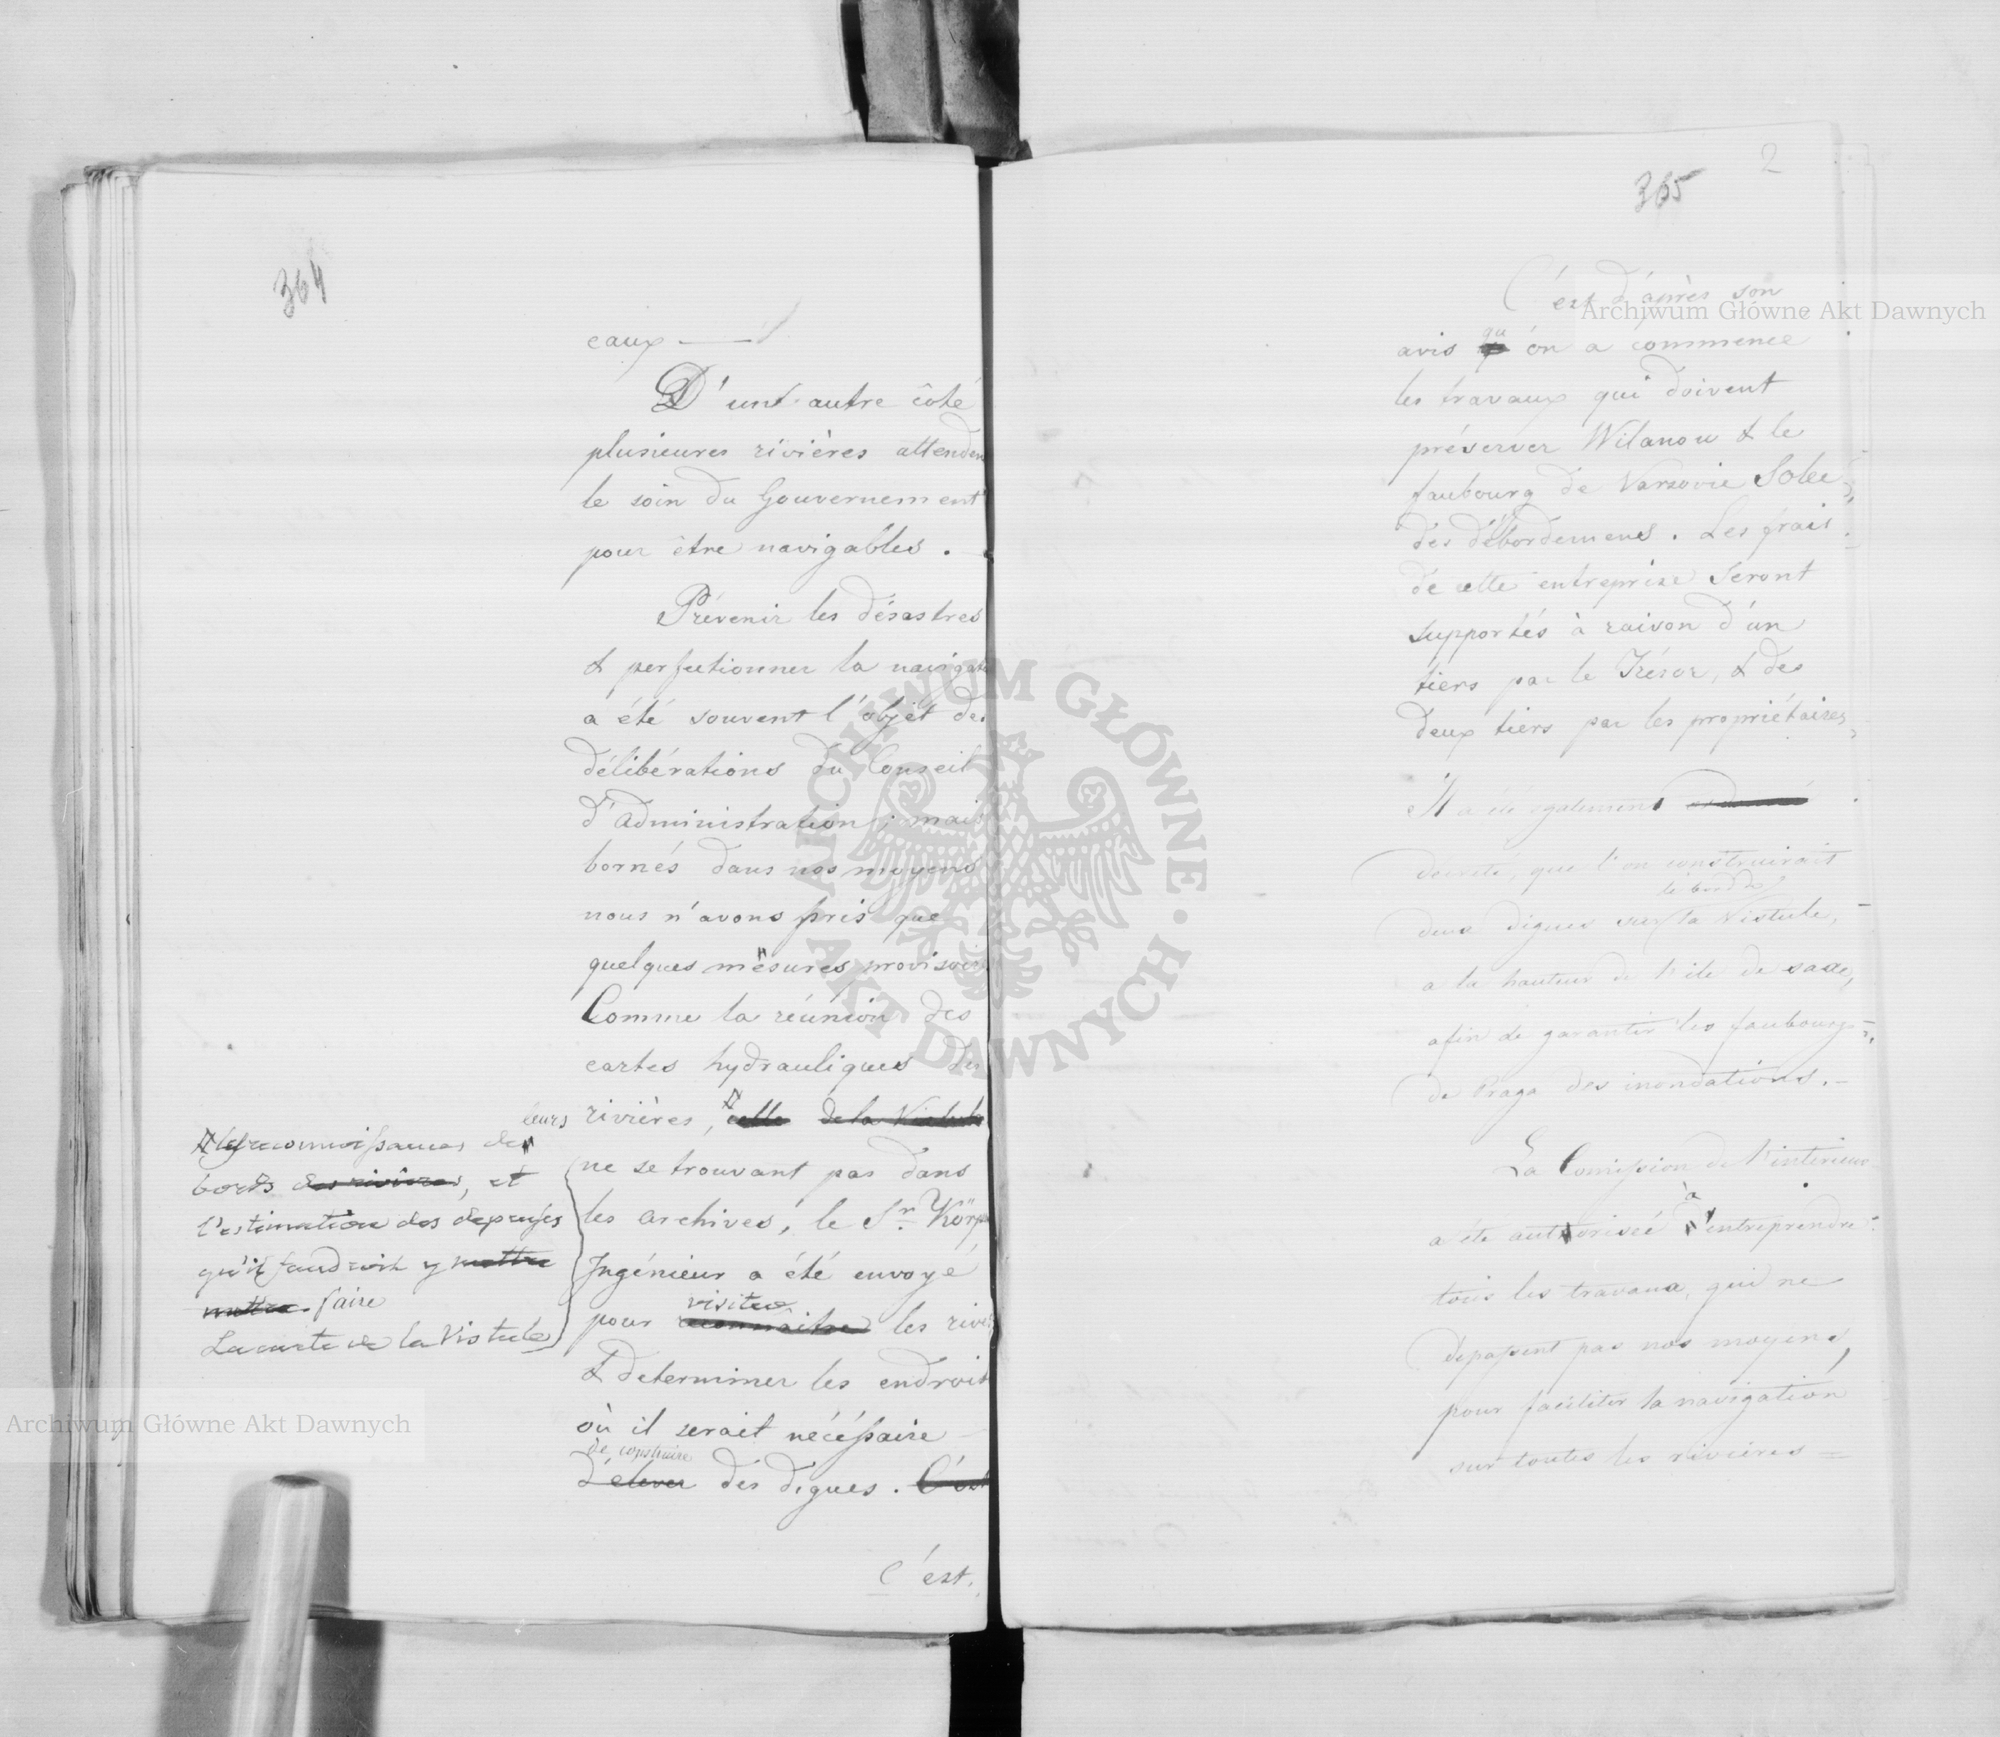 364
eaux
D'unt autre côté
plusieures rivières attenden
le soin du Gouvernement
pour être navigables.
Prévenir les désastres
& perfectionner la navigati
a été souvent l'objet des
délibérations du Conseil
d'administration; mais
bornés dans nos moyens
nous n'avons pris que
quelques mesures provisoir
Comme la réunion des
cartes hydrauliques des
rivières, celle de la Vistule
ne se trouvant pas dans
les archives, le Sr. Körp
Ingénieur a été envoyé
visiter
pour reconnaitre les rives
& determiner les endroit
où il serait nécéssaire
de construire
d'élever des digues. C'ést
C'ést.
leurs
les reconnoissances des
bords des rivières, et
l'estimation des depenses
qu'il faudroit y mettre
mettre faire
La carte de la Vistule
2
365
C'ést d'après son
qu
avis on a commencé
les travaux qui doivent
préserver Wilanow & le
faubourg de Varsovie Solec
des débordemens. Les frais
de cette entreprise seront
supportés à raison d'un
tiers par le Trésor, & des
deux tiers par les propriétaires,
Il a été également
decreté, que l'on construirait
le bord de
deux digues sur la Vistule,
a la hauteur de l'ile de saxe,
afin de garantir les faubourgs
de Praga des inondations.
La Comission de l'interieur
à
a été authorisée d'entreprendre
tous les travaux, qui ne
depassent pas nos moyens,
pour faciliter la navigation
sur toutes les rivieres
Archiwum Główne Akt Dawnych
Archiwum Główne Akt Dawnych
ARCHIWUM GŁÓWNE · AKT DAWNYCH ·